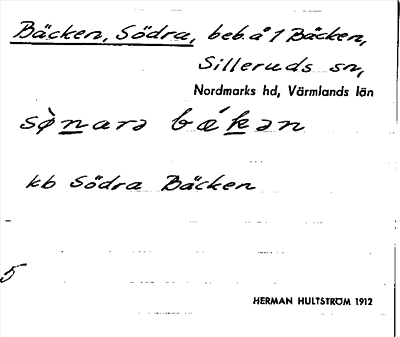 Bäcken, Södra, beb. å 1 Bäcken,
Silleruds sn,
Nordmarks hd, Värmlands län
sø̀narə bǽkən
kb Södra Bäcken
5
HERMAN HULTSTRÖM 1912